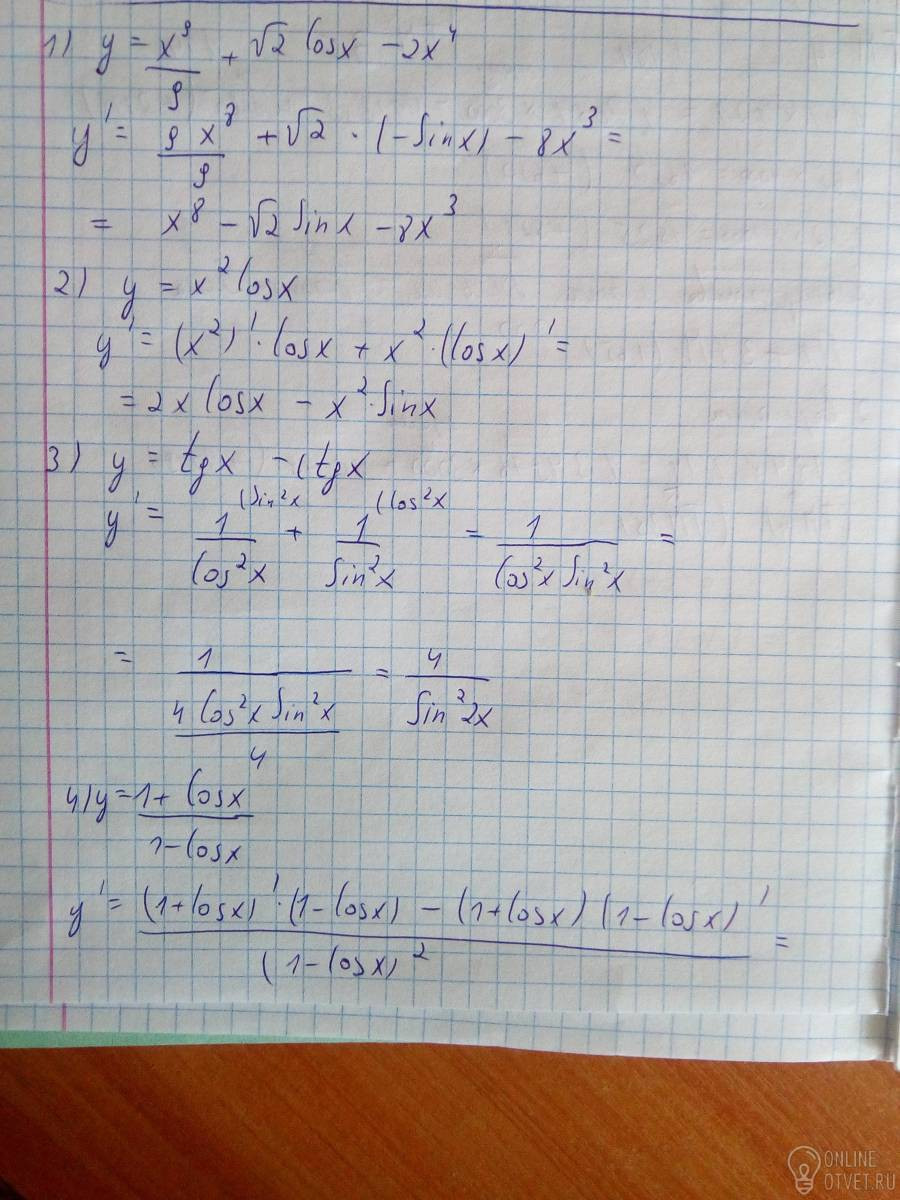 1) y = x⁹/9 + √2 cosx − 2x⁴
y' = 9x⁸/9 + √2 · (−sinx) − 8x³ =
= x⁸ − √2 sinx − 8x³
2) y = x² cosx
y' = (x²)' · cosx + x² · (cosx)' =
= 2x cosx − x² · sinx
3) y = tgx − ctgx
y' = 1(sin²x/cos²x + 1(cos²x/sin²x = 1/cos²x sin²x =
= 1/(4cos²x sin²x/4) = 4/sin²2x
4) y = 1+cosx/1−cosx
y' = (1+cosx)' · (1−cosx) − (1+cosx)(1−cosx)'/(1−cosx)² =
ONLINE
OTVET.RU